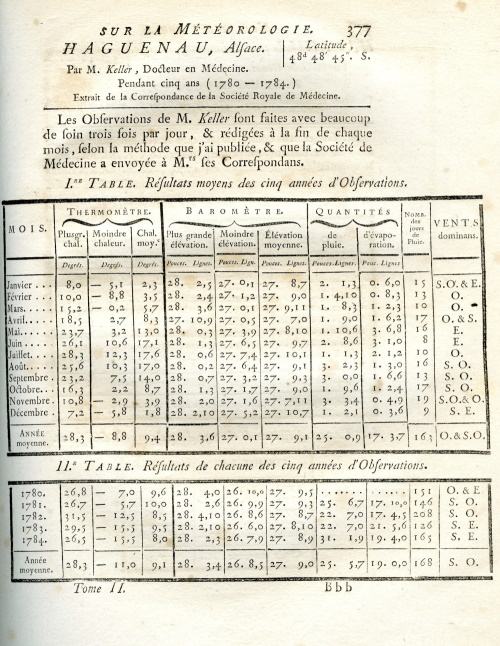 SUR LA MÉTÉOROLOGIE. 377
HAGUENAU, Alsace. Latitude,
48d 48′ 45″. S.
Par M. Keller, Docteur en Médecine.
Pendant cinq ans (1780 — 1784.)
Extrait de la Correspondance de la Société Royale de Médecine.
Les Observations de M. Keller sont faites avec beaucoup
de soin trois fois par jour, & rédigées à la fin de chaque
mois, selon la méthode que j'ai publiée, & que la Société de
Médecine a envoyée à M.rs ses Correspondans.
I.re TABLE. Résultats moyens des cinq années d'Observations.
MOIS. THERMOMÈTRE. BAROMÈTRE. QUANTITÉS Nomb. des jours de Pluie. VENTS dominans.
Plusgr. chal. Moindre chaleur. Chal. moy.e Plus grande élévation. Moindre élévation. Élévation moyenne. de pluie. d'évaporation.
Degrés. Degrés. Degrés. Pouces. Lignes. Pouces. Lign. Pouces. Lignes. Pouces. Lignes. Pouc. Lignes.
Janvier... 8,0 — 5,1 2,3 28. 2,5 27. 0,1 27. 8,7 2. 1,3 0. 6,0 15 S.O. & E.
Février... 10,0 — 8,8 3,5 28. 2,4 27. 1,2 27. 9,0 1. 4,10 0. 8,3 13 O.
Mars..... 15,2 — 0,2 5,7 28. 3,6 27. 0,1 27. 9,11 1. 8,3 1. 2,3 10 O.
Avril..... 18,5 2,7 8,3 27. 10,9 27. 0,5 27. 7,0 1. 9,0 1. 6,2 17 O. & S.
Mai...... 23,7 3,2 13,0 28. 0,3 27. 3,9 27. 8,10 1. 10,6 3. 6,8 16 E.
Juin..... 26,1 10,6 17,1 28. 1,3 27. 6,5 27. 9,7 2. 8,6 3. 1,0 8 E.
Juillet.... 28,3 12,3 17,6 28. 0,6 27. 7,4 27. 10,1 1. 1,3 2. 1,2 10 O.
Août..... 25,6 10,3 17,0 28. 0,2 27. 6,4 27. 9,1 3. 2,3 1. 3,0 16 S. O.
Septembre. 23,2 7,5 14,0 28. 0,7 27. 3,2 27. 9,3 3. 0,0 1. 6,6 13 S. O.
Octobre... 16,3 2,2 8,7 28. 1,3 27. 1,7 27. 9,0 1. 9,6 1. 2,4 17 S. O.
Novembre. 10,8 — 2,9 3,9 28. 2,0 27. 1,6 27. 7,11 3. 3,4 0. 4,9 19 S.O.& O.
Décembre. 7,2 — 5,8 1,8 28. 2,10 27. 5,2 27. 10,7 1. 2,1 0. 3,6 9 S. E.
ANNÉE moyenne. 28,3 — 8,8 9,4 28. 3,6 27. 0,1 27. 9,1 25. 0,9 17. 3,7 163 O.&S.O.
II.e TABLE. Résultats de chacune des cinq années d'Observations.
1780. 26,8 — 7,0 9,6 28. 4,0 26. 10,0 27. 9,5 ....... ...... 151 O. & E
1781. 26,7 — 5,7 10,0 28. 2,6 26. 9,9 27. 9,3 25. 6,7 17. 10,0 146 S. O.
1782. 31,5 — 12,5 8,5 28. 4,10 26. 8,6 27. 8,7 22. 7,0 17. 4,5 208 S. O.
1783. 29,5 — 15,5 9,5 28. 2,10 26. 6,0 27. 8,10 22. 7,0 21. 5,6 126 S. E.
1784. 26,5 — 15,5 8,0 28. 2,3 26. 7,9 27. 8,9 31. 1,9 19. 4,0 165 S. E.
Année moyenne. 28,3 — 11,0 9,1 28. 3,4 26. 8,5 27. 9,0 25. 5,7 19. 0,0 168 S. O.
Tome II. Bbb